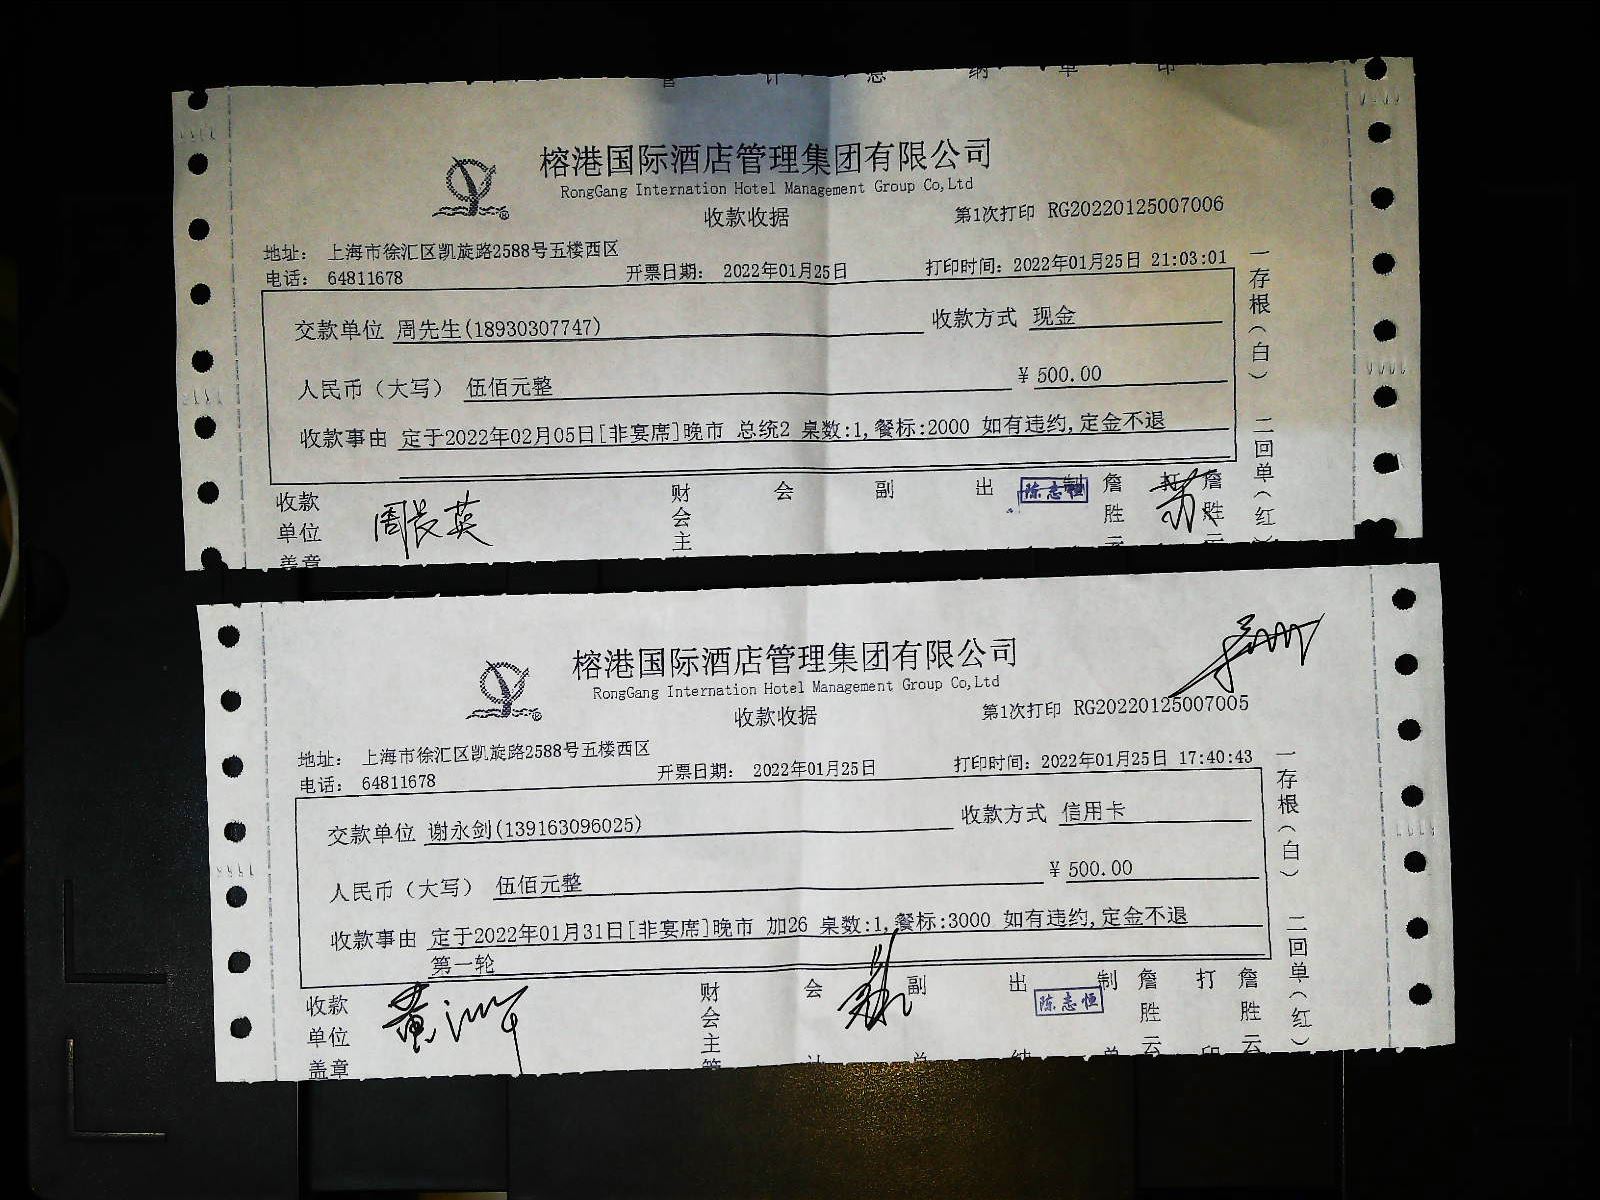 榕港国际酒店管理集团有限公司
RongGang Internation Hotel Management Group Co,Ltd
收款收据
第1次打印 RG20220125007006
地址： 上海市徐汇区凯旋路2588号五楼西区
电话： 64811678
开票日期： 2022年01月25日
打印时间：2022年01月25日 21:03:01
交款单位 周先生(18930307747)
收款方式 现金
人民币（大写） 伍佰元整
¥ 500.00
收款事由 定于2022年02月05日[非宴席]晚市 总统2 桌数:1,餐标:2000 如有违约,定金不退
一存根（白） 二回单（红）
收款单位盖章
周长英
财会主
会
副
出
陈志恒
制
詹胜云
打
詹胜云
榕港国际酒店管理集团有限公司
RongGang Internation Hotel Management Group Co,Ltd
收款收据
第1次打印 RG20220125007005
地址： 上海市徐汇区凯旋路2588号五楼西区
电话： 64811678
开票日期： 2022年01月25日
打印时间：2022年01月25日 17:40:43
交款单位 谢永剑(139163096025)
收款方式 信用卡
人民币（大写） 伍佰元整
¥ 500.00
收款事由 定于2022年01月31日[非宴席]晚市 加26 桌数:1,餐标:3000 如有违约,定金不退
第一轮
一存根（白） 二回单（红）
收款单位盖章
财会主管
会计
副总
出纳
陈志恒
制单
詹胜云
打印
詹胜云